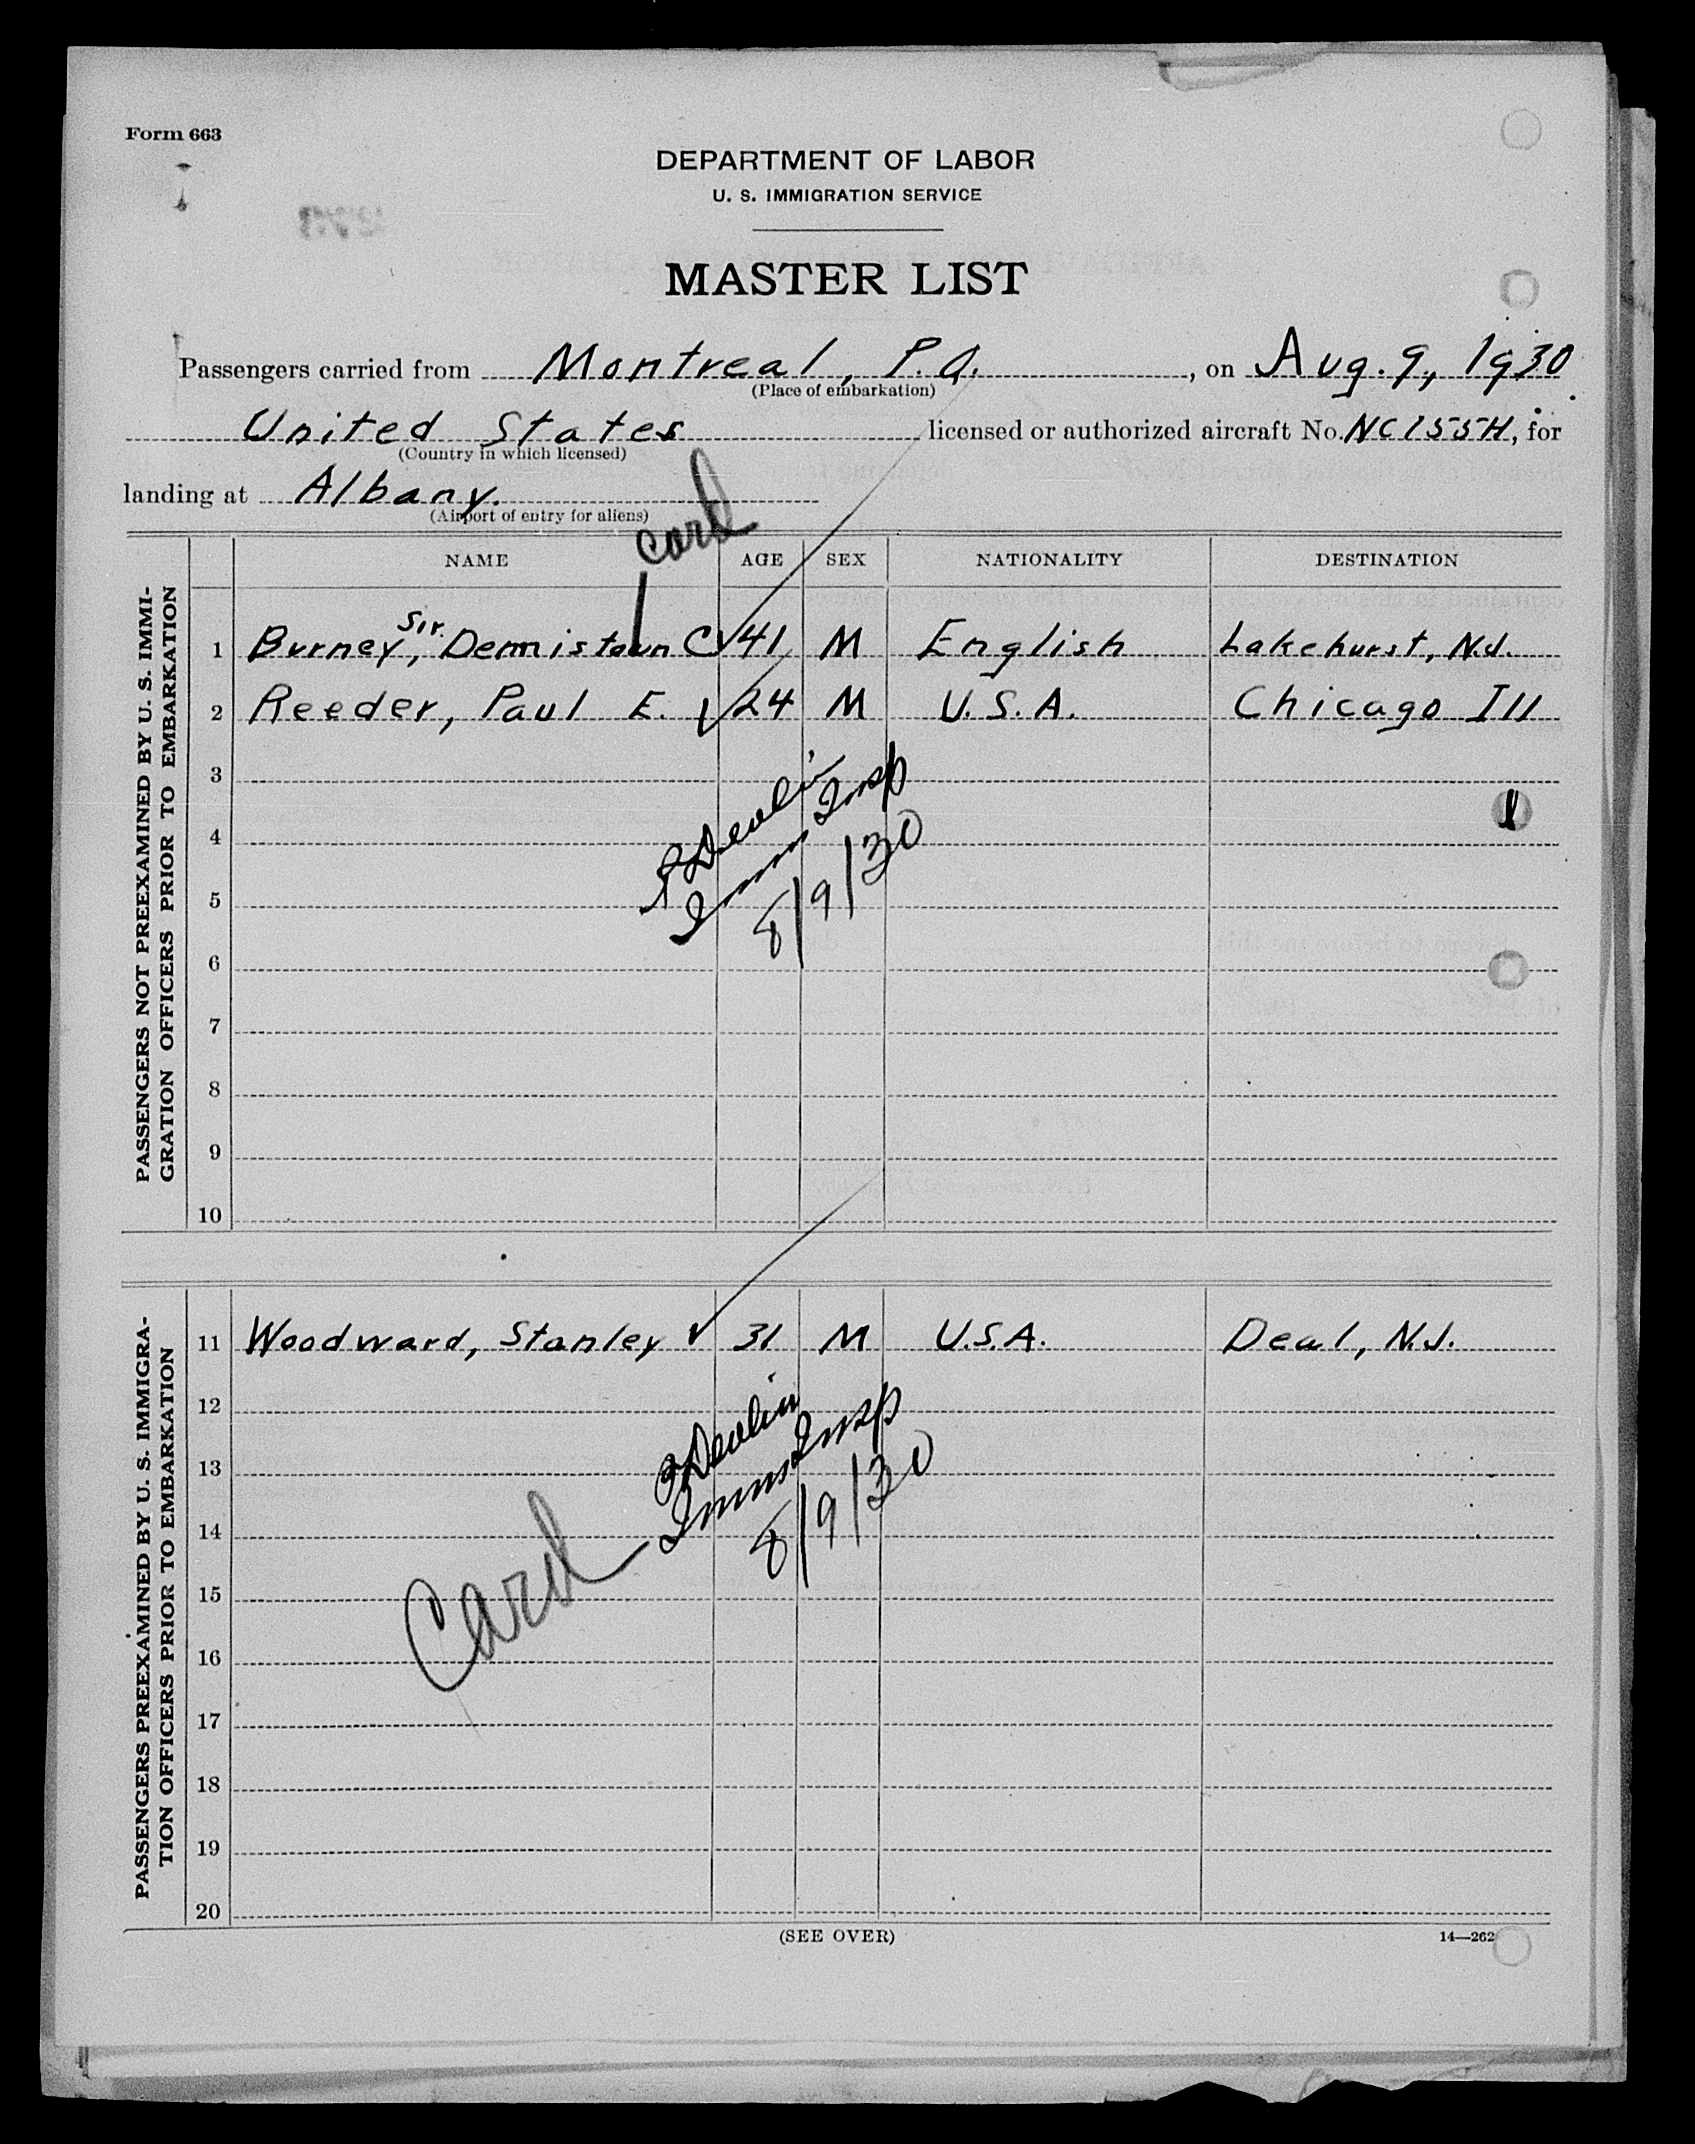 Form 663
DEPARTMENT OF LABOR
U. S. IMMIGRATION SERVICE
MASTER LIST
Passengers carried from Montreal, P.Q. , on Aug. 9, 1930
(Place of embarkation)
United States licensed or authorized aircraft No. NC155H, for
(Country in which licensed)
landing at Albany.
(Airport of entry for aliens)
card
NAME AGE SEX NATIONALITY DESTINATION
PASSENGERS NOT PREEXAMINED BY U. S. IMMI-
GRATION OFFICERS PRIOR TO EMBARKATION
1 Burney, Sir. Dennistoun C 41 M English Lakehurst, N.J.
2 Reeder, Paul E. 24 M U.S.A. Chicago Ill
3
4
5
6
7
8
9
10
Devlin
Imm Insp
8/9/30
PASSENGERS PREEXAMINED BY U. S. IMMIGRA-
TION OFFICERS PRIOR TO EMBARKATION
11 Woodward, Stanley 31 M U.S.A. Deal, N.J.
12
13
14
15
16
17
18
19
20
Devlin
Imm Insp
8/9/30
Card
(SEE OVER)
14—262